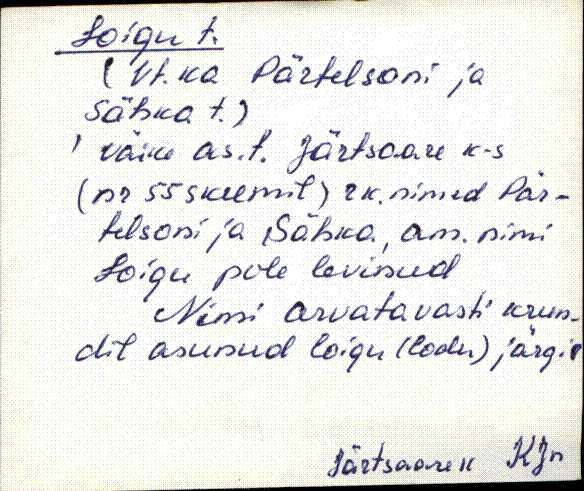 Loigu t.
(Vt. ka Pärtelsoni ja
Sähka t.)
väike as.t. Järtsaare k-s
(nr 55 skeemil) rk. nimed Pär-
telsoni ja Sähka, am. nimi
Loigu pole levinud
Nimi arvatavasti krun-
dil asunud loigu (lodu) järgi
Järtsaare k KJn